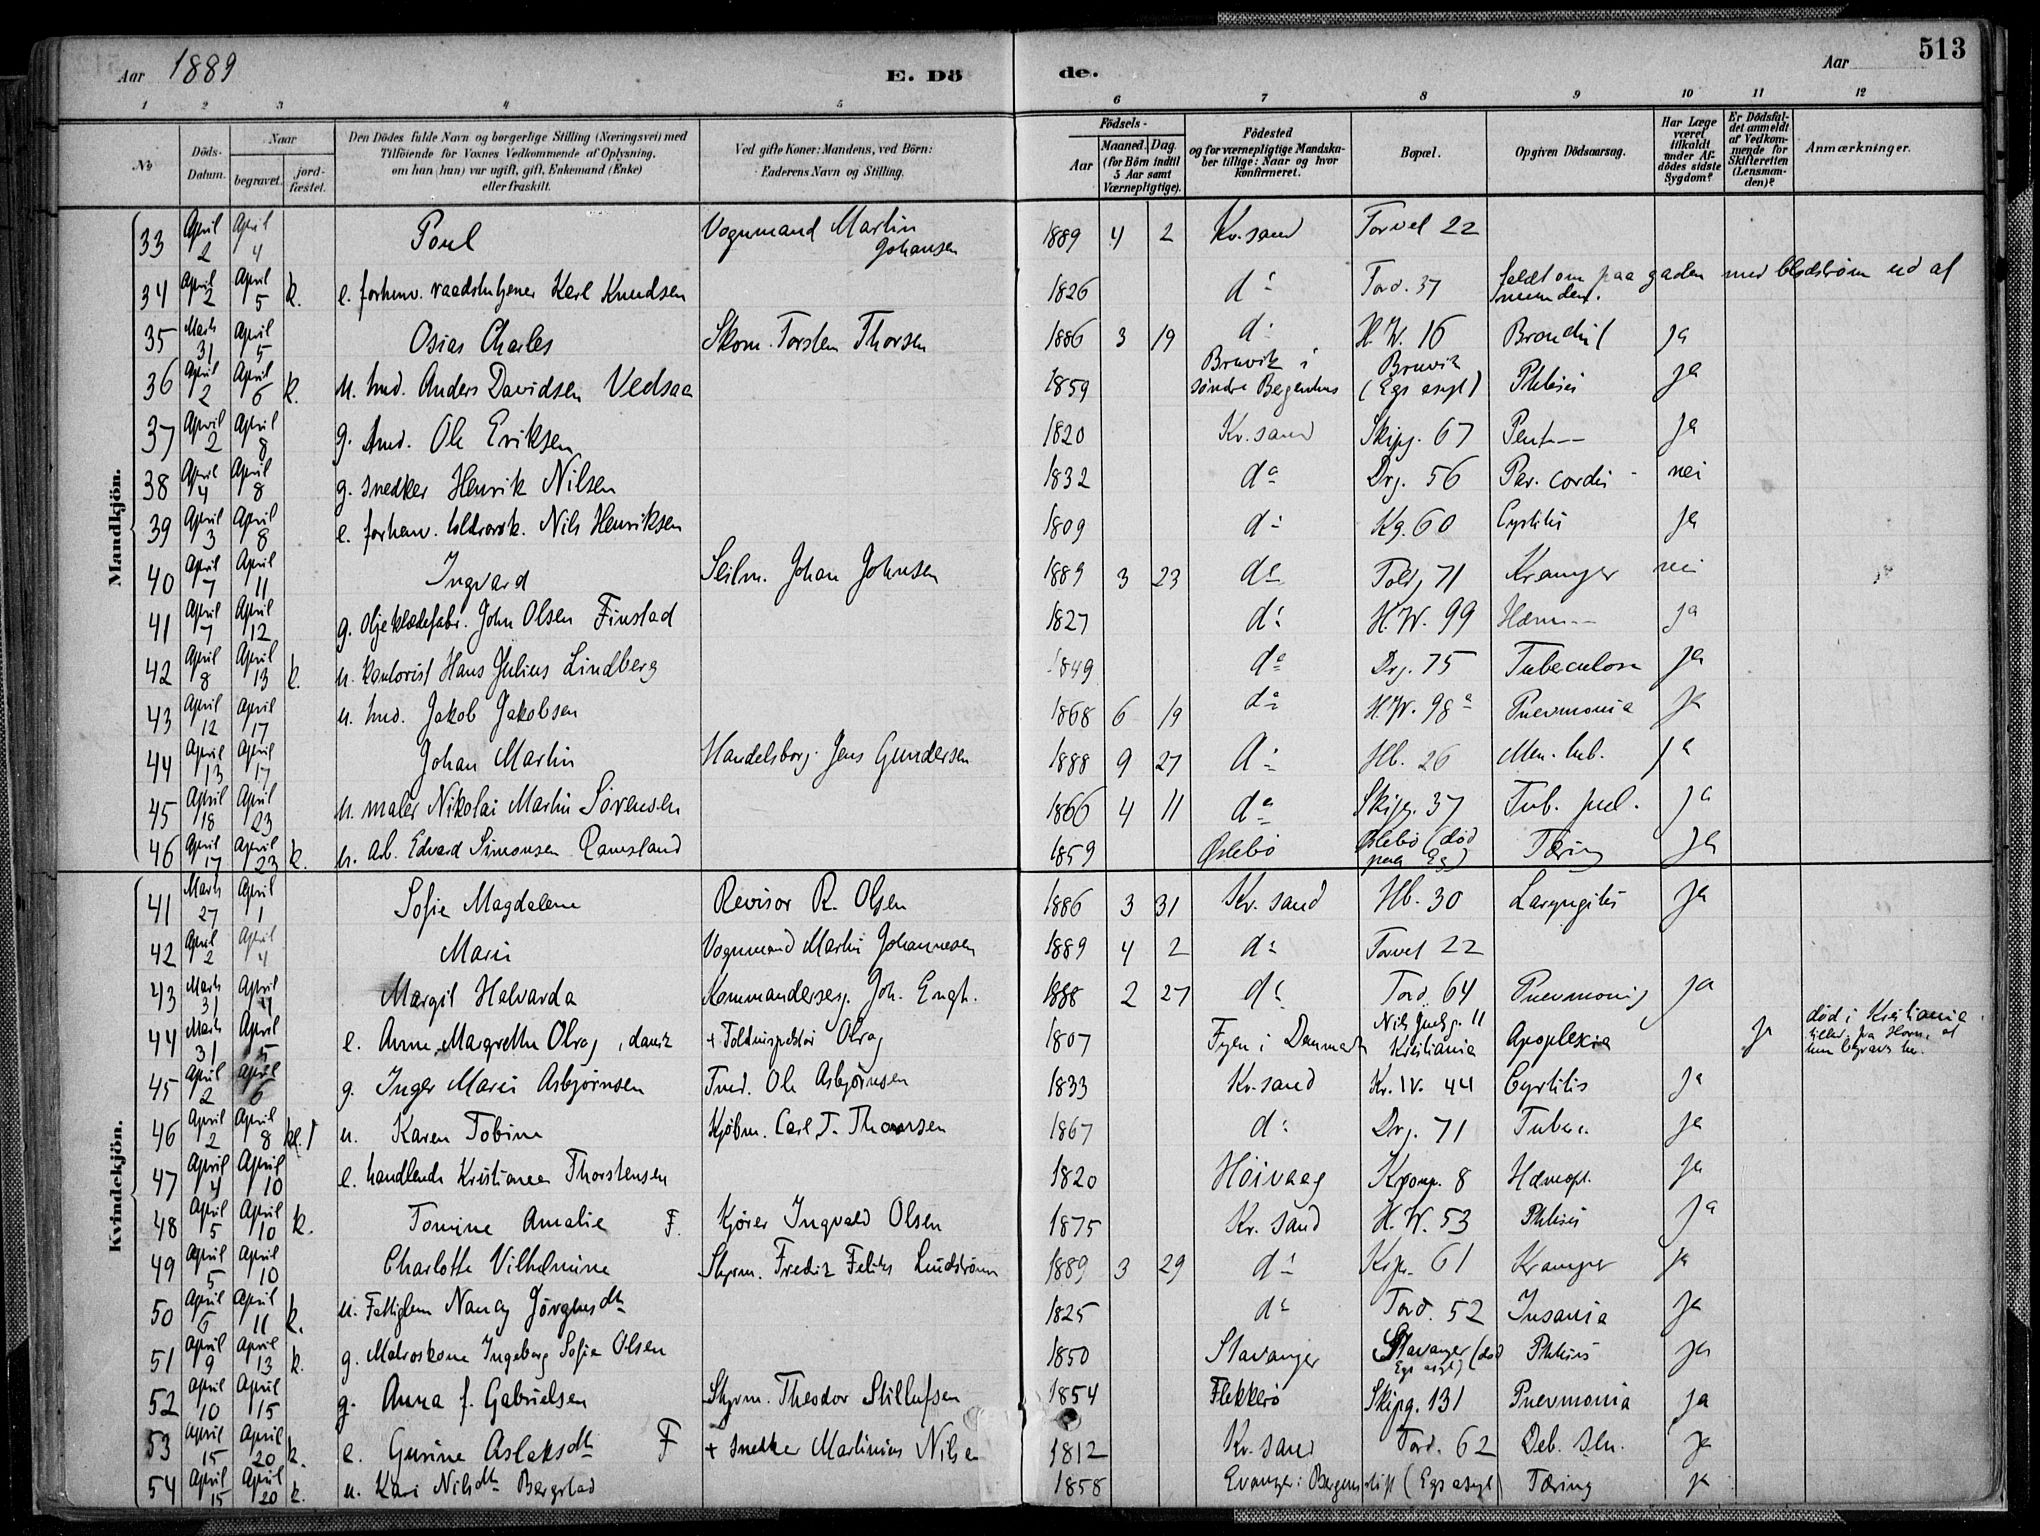 Aar 1889 E. Dö de. Aar 513
1 2 3 4 5 6 7 8 9 10 11 12
No Döds-Datum. Naar begravet. jordfæstet. Den Dödes fulde Navn og borgerlige Stilling (Næringsvei) med Tilföiende for Voxnes Vedkommende af Oplysning, om han (hun) var ugift, gift, Enkemand (Enke) eller fraskilt. Ved gifte Koner: Mandens, ved Börn: Faderens Navn og Stilling. Födsels- Aar Maaned. Dag. (for Börn indtil 5 Aar samt Værnepligtige). Födested og for værnepligtige Mandskaber tillige: Naar og hvor Konfirmeret. Bopæl. Opgiven Dödsaarsag. Har Læge været tilkaldt under Afdödes sidste Sygdom? Er Dödsfaldet anmeldt af Vedkommende for Skifteretten (Lensmanden)? Anmærkninger.
Mandkjön.
33 April 2 April 4 Poul Vognmand Martin Johansen 1889 4 2 Kr.sand Torvet 22
34 April 2 April 5 k. e. forhenv. raadstutjener Karl Knudsen 1826 do Tord. 37 faldt om paa gaden med blodstrøm ud af munden.
35 Marts 31 April 5 Osias Charles Skom. Torsten Thorsen 1886 3 19 do H.W. 16 Bronchit ja
36 April 2 April 6 k. u. tmd. Anders Davidsen Vedsaa 1859 Bruvik i søndre Bergenhus Bruvik (Egs asyl) Phtisis ja
37 April 2 April 8 g. tmd. Ole Eriksen 1820 Kr.sand Skipg. 67 ja
38 April 4 April 8 g. snedker Henrik Nilsen 1832 do Drg. 56 Par. cordis nei
39 April 3 April 8 e. forhenv. toldrorsk. Nils Henriksen 1809 do Kg. 60 Cystitis ja
40 April 7 April 11 Ingvard Seilm. Johan Johnsen 1889 3 23 do Toldg 71 Kramper nei
41 April 7 April 12 g. oljeklædefabr. John Olsen Finstad 1827 do H.W. 99 Hæm-- ja
42 April 8 April 13 k. u. kontorist Hans Julius Lindberg 1849 do Drg. 75 Tuberculose ja
43 April 12 April 17 u. tmd. Jakob Jakobsen 1868 6 19 do H.W. 98a Pnevmonia ja
44 April 13 April 17 Johan Martin Handelsborg. Jens Gundersen 1888 9 27 do Hb. 26 Men. tub. ja
45 April 18 April 23 u. maler Nikolai Martin Sørensen 1866 4 11 do Skipg. 37 Tub. pul. ja
46 April 17 April 23 k. u. arb. Edvard Simonsen Ramsland 1859 Øslebø Øslebø (død paa Eg) Tæring ja
Kvindekjön.
41 Marts 27 April 1 Sofie Magdalene Revisor R. Olsen 1886 3 31 Kr.sand Hb. 30 Laryngitis ja
42 April 2 April 4 Marie Vognmand Martin Johannesen 1889 4 2 do Torvet 22
43 Marts 31 April 4 Margit Halvarda Kommandersegj. Joh. Engh. 1888 2 27 do Tord. 64 Pnevmoni ja
44 Marts 31 April 5 e. Anne Margrethe Olrog, dansk + Toldinspektør Olrog 1807 Fyen i Danmark Nils Juelsg. 11 Kristiania Apoplexia ja død i Kristiania
45 April 2 April 6 g. Inger Marie Asbjørnsen Tmd. Ole Asbjørnsen 1833 Kr.sand Kr. IV. 44 Cystitis ja
46 April 2 April 8 kl. 1 u. Karen Tobine Kjøbm. Carl T. Thomsen 1867 do Drg. 71 Tuberc. ja
47 April 4 April 10 e. handlende Kristianea Thorstensen 1820 Høivaag Kromp. 8 Hæmopt. ja
48 April 5 April 10 k. Tomine Amalie F. Kjører Ingvald Olsen 1875 Kr.sand H.W. 53 Phtisis ja
49 April 5 April 10 Charlotte Vilhelmine Styrm. Fredrik Feliks Lindstrøm 1889 3 29 do Krp. 61 Kramper ja
50 April 6 April 11 k. u. Fattiglem Nancy Jørgensdtr 1825 do Tord. 52 Insania ja
51 April 9 April 13 k. g. Matroskone Ingeborg Sofie Olsen 1850 Stavanger Stavanger (død Egs asyl) Phtisis ja
52 April 10 April 15 g. Anna f. Gabrielsen Styrm. Theodor Stillufsen 1854 Flekkerø Skipg. 131 Pnevmonia ja
53 April 15 April 20 k. e. Gurine Aslaksdtr F + snedker Martinius Nilsen 1812 Kr.sand Tord. 62 Deb. sen. ja
54 April 15 April 20 k. u. Kari Nilsdtr Bergstad 1858 Evanger i Bergens stift (Egs asyl) Tæring ja